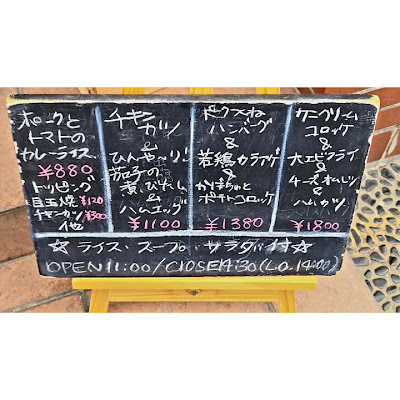 ポークと
トマトの
カレーライス
¥880
トッピング
目玉焼 ¥120
チキンカツ ¥300
他
チキン
カツ
&
ひんやり!
茄子の
煮びたし
&
ハムエッグ
¥1100
ポークつくね
ハンバーグ
&
若鶏カラアゲ
&
かぼちゃと
ポテトコロッケ
¥1380
カニクリーム
コロッケ
&
大エビフライ
&
チーズメンチ
&
ハムカツ
¥1800
☆ ライス・スープ・サラダ付 ☆
OPEN 11:00 / CLOSE 14:30 (L.O. 14:00)